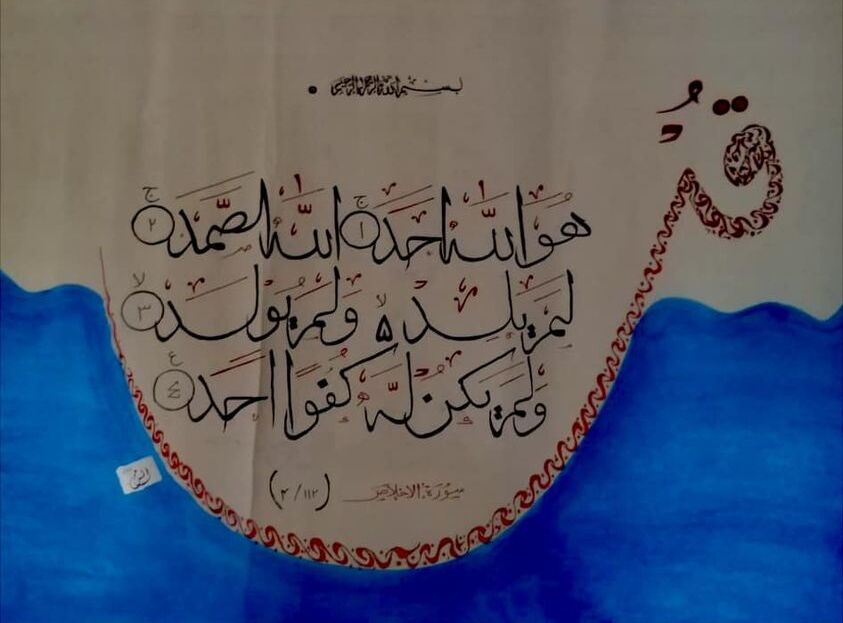 بِسْمِ اللهِ الرَّحْمٰنِ الرَّحِيْمِ
قُلْ
هُوَ اللّٰهُ اَحَدٌ ج ۱ اَللّٰهُ الصَّمَدُ ج ۲
لَمْ يَلِدْ لا ۵ وَلَمْ يُوْلَدْ لا ۳
وَلَمْ يَكُنْ لَّهٗ كُفُوًا اَحَدٌ ع ٤
سورة الاخلاص (۱۱۲ / ۴)